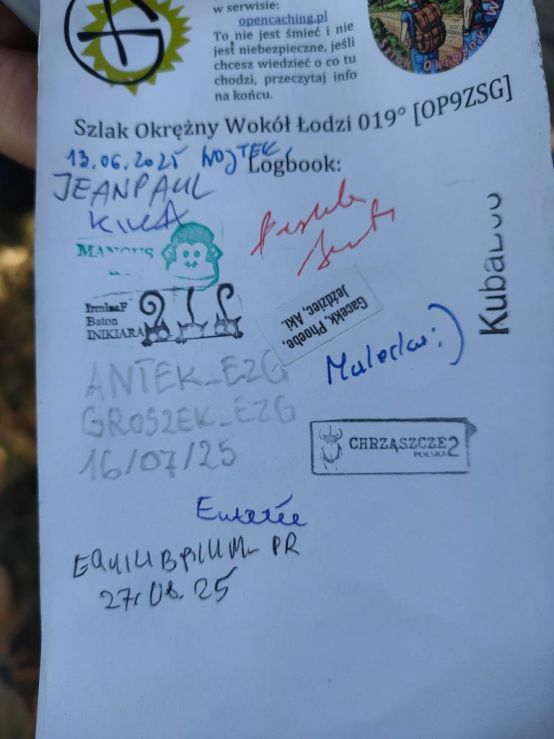 w serwisie:
opencaching.pl
To nie jest śmieć i nie
jest niebezpieczne, jeśli
chcesz wiedzieć o co tu
chodzi, przeczytaj info
na końcu.
Szlak Okrężny Wokół Łodzi 019° [OP9ZSG]
13.06.2025 WOJTEK
Logbook:
JEANPAUL
KIKA
MANGUS
IrminaF
Baton
INIKIARA
Gacekk, Phoebe,
Jeździec, Aki.
KubaBDG
ANTEK_EZG
GROSZEK_EZG
16/07/25
CHRZĄSZCZE2
POLSKA
EQUILIBRIUM_PR
27.08.25